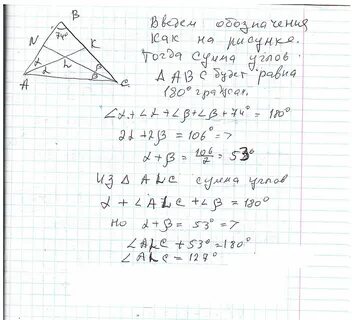 B
74°
N
K
α
α
L
β
β
A
C
Введем обозначения
как на рисунке.
Тогда сумма углов
Δ ABC будет равна
180° градусам.
∠α+∠α+∠β+∠β+74°=180°
2α+2β=106° =>
α+β=106/2=53°
Из Δ ALC сумма углов
α+∠ALC+∠β=180°
но α+β=53° =>
∠ALC+53°=180°
∠ALC=129°